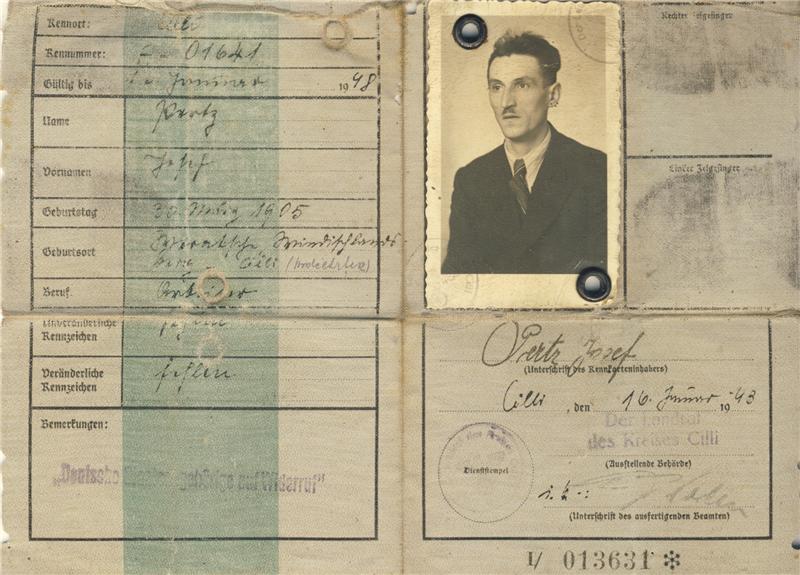 Kennort: Cilli
Kennummer: 01641
Gültig bis Januar 1948
Name Pertz
Vornamen Josef
Geburtstag 30. 1905
Geburtsort Windischlands-
berg Cilli
Beruf Arbeiter
Unveränderliche
Kennzeichen fehlen
Veränderliche
Kennzeichen fehlen
Bemerkungen:
auf Widerruf"
Rechter Zeigefinger
Linker Zeigefinger
Pertz Josef
(Unterschrift des Kennkarteninhabers)
Cilli, den 16. Januar 1943
Der Landrat
des Kreises Cilli
(Ausstellende Behörde)
Dienststempel
(Unterschrift des ausfertigenden Beamten)
I/ 013631 *